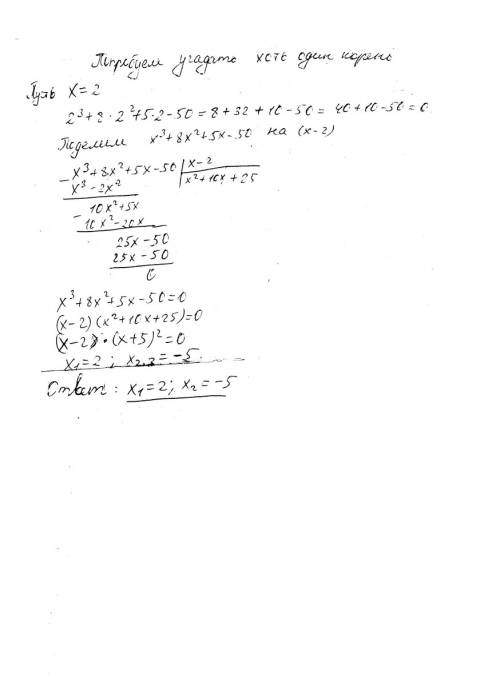 Попробуем угадать хоть один корень
Пусть x=2
2³+8·2²+5·2-50=8+32+10-50=40+10-50=0
Поделим x³+8x²+5x-50 на (x-2)
x³+8x²+5x-50 | x-2
- x³-2x² x²+10x+25
10x²+5x
- 10x²-20x
25x-50
25x-50
0
x³+8x²+5x-50=0
(x-2)(x²+10x+25)=0
(x-2)·(x+5)²=0
x₁=2; x₂,₃=-5.
Ответ: x₁=2; x₂=-5